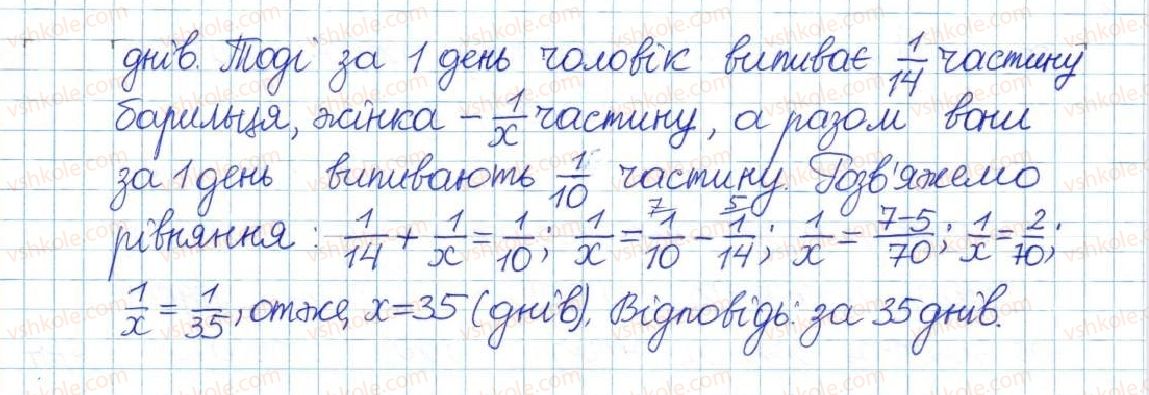 днів. Тоді за 1 день чоловік випиває 1/14 частину
барильця, жінка – 1/x частину, а разом вони
за 1 день випивають 1/10 частину. Розв'яжемо
рівняння: 1/14 + 1/x = 1/10; 1/x = 1/10 (7) – 1/14 (5); 1/x = 7–5/70; 1/x = 2/70;
1/x = 1/35, отже, x = 35 (днів). Відповідь: за 35 днів.